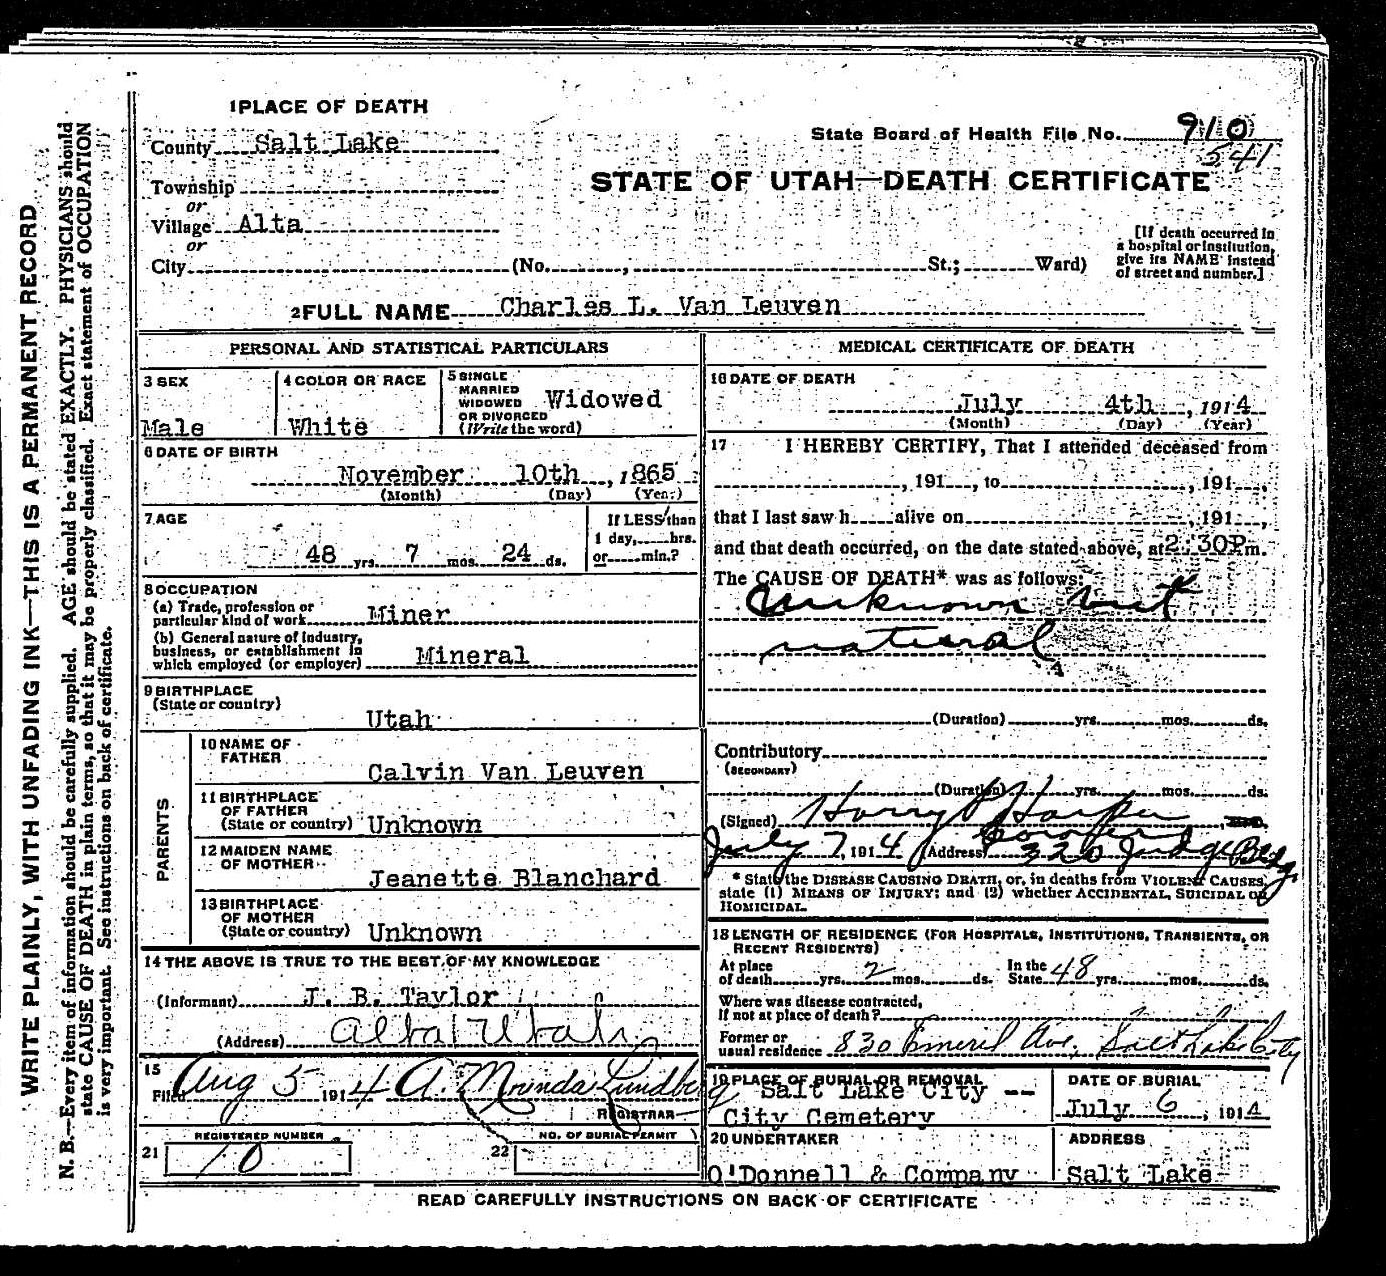 1 PLACE OF DEATH
County Salt Lake
Township
or
Village Alta
or
City (No. , St.; Ward)
State Board of Health File No. 910
541
STATE OF UTAH—DEATH CERTIFICATE
[If death occurred in
a hospital or institution,
give its NAME instead
of street and number.]
2 FULL NAME Charles L. Van Leuven
PERSONAL AND STATISTICAL PARTICULARS
3 SEX
Male
4 COLOR OR RACE
White
5 SINGLE
MARRIED
WIDOWED
OR DIVORCED
(Write the word)
Widowed
6 DATE OF BIRTH
November 10th, 1865
(Month) (Day) (Year)
7 AGE
48 yrs. 7 mos. 24 ds.
If LESS than
1 day, hrs.
or min.?
8 OCCUPATION
(a) Trade, profession or
particular kind of work Miner
(b) General nature of industry,
business, or establishment in
which employed (or employer) Mineral
9 BIRTHPLACE
(State or country)
Utah
PARENTS
10 NAME OF
FATHER
Calvin Van Leuven
11 BIRTHPLACE
OF FATHER
(State or country) Unknown
12 MAIDEN NAME
OF MOTHER
Jeanette Blanchard
13 BIRTHPLACE
OF MOTHER
(State or country) Unknown
14 THE ABOVE IS TRUE TO THE BEST OF MY KNOWLEDGE
(Informant) J. B. Taylor
(Address) Alta Utah
15
Filed Aug 5 1914 A. Mounda Lundberg
REGISTRAR
REGISTERED NUMBER
21 10
NO. OF BURIAL PERMIT
22
MEDICAL CERTIFICATE OF DEATH
16 DATE OF DEATH
July 4th, 1914
(Month) (Day) (Year)
17 I HEREBY CERTIFY, That I attended deceased from
, 191 , to , 191 ,
that I last saw h alive on , 191 ,
and that death occurred, on the date stated above, at 2:30P m.
The CAUSE OF DEATH* was as follows:
Unknown but
natural
(Duration) yrs. mos. ds.
Contributory
(SECONDARY)
(Duration) yrs. mos. ds.
(Signed) Harry P Harper
Coroner
July 7, 1914 (Address) 320 Judge Bldg.
* State the DISEASE CAUSING DEATH, or, in deaths from VIOLENT CAUSES,
state (1) MEANS OF INJURY; and (2) whether ACCIDENTAL, SUICIDAL OR
HOMICIDAL.
18 LENGTH OF RESIDENCE (FOR HOSPITALS, INSTITUTIONS, TRANSIENTS, OR
RECENT RESIDENTS)
At place
of death yrs. 2 mos. ds. In the
State 48 yrs. mos. ds.
Where was disease contracted,
If not at place of death?
Former or
usual residence 830 Emeril Ave, Salt Lake City
19 PLACE OF BURIAL OR REMOVAL
Salt Lake City --
City Cemetery
DATE OF BURIAL
July 6, 1914
20 UNDERTAKER
O'Donnell & Company
ADDRESS
Salt Lake
READ CAREFULLY INSTRUCTIONS ON BACK OF CERTIFICATE
WRITE PLAINLY, WITH UNFADING INK—THIS IS A PERMANENT RECORD
N. B.—Every item of information should be carefully supplied. AGE should be stated EXACTLY. PHYSICIANS should
state CAUSE OF DEATH in plain terms, so that it may be properly classified. Exact statement of OCCUPATION
is very important. See instructions on back of certificate.